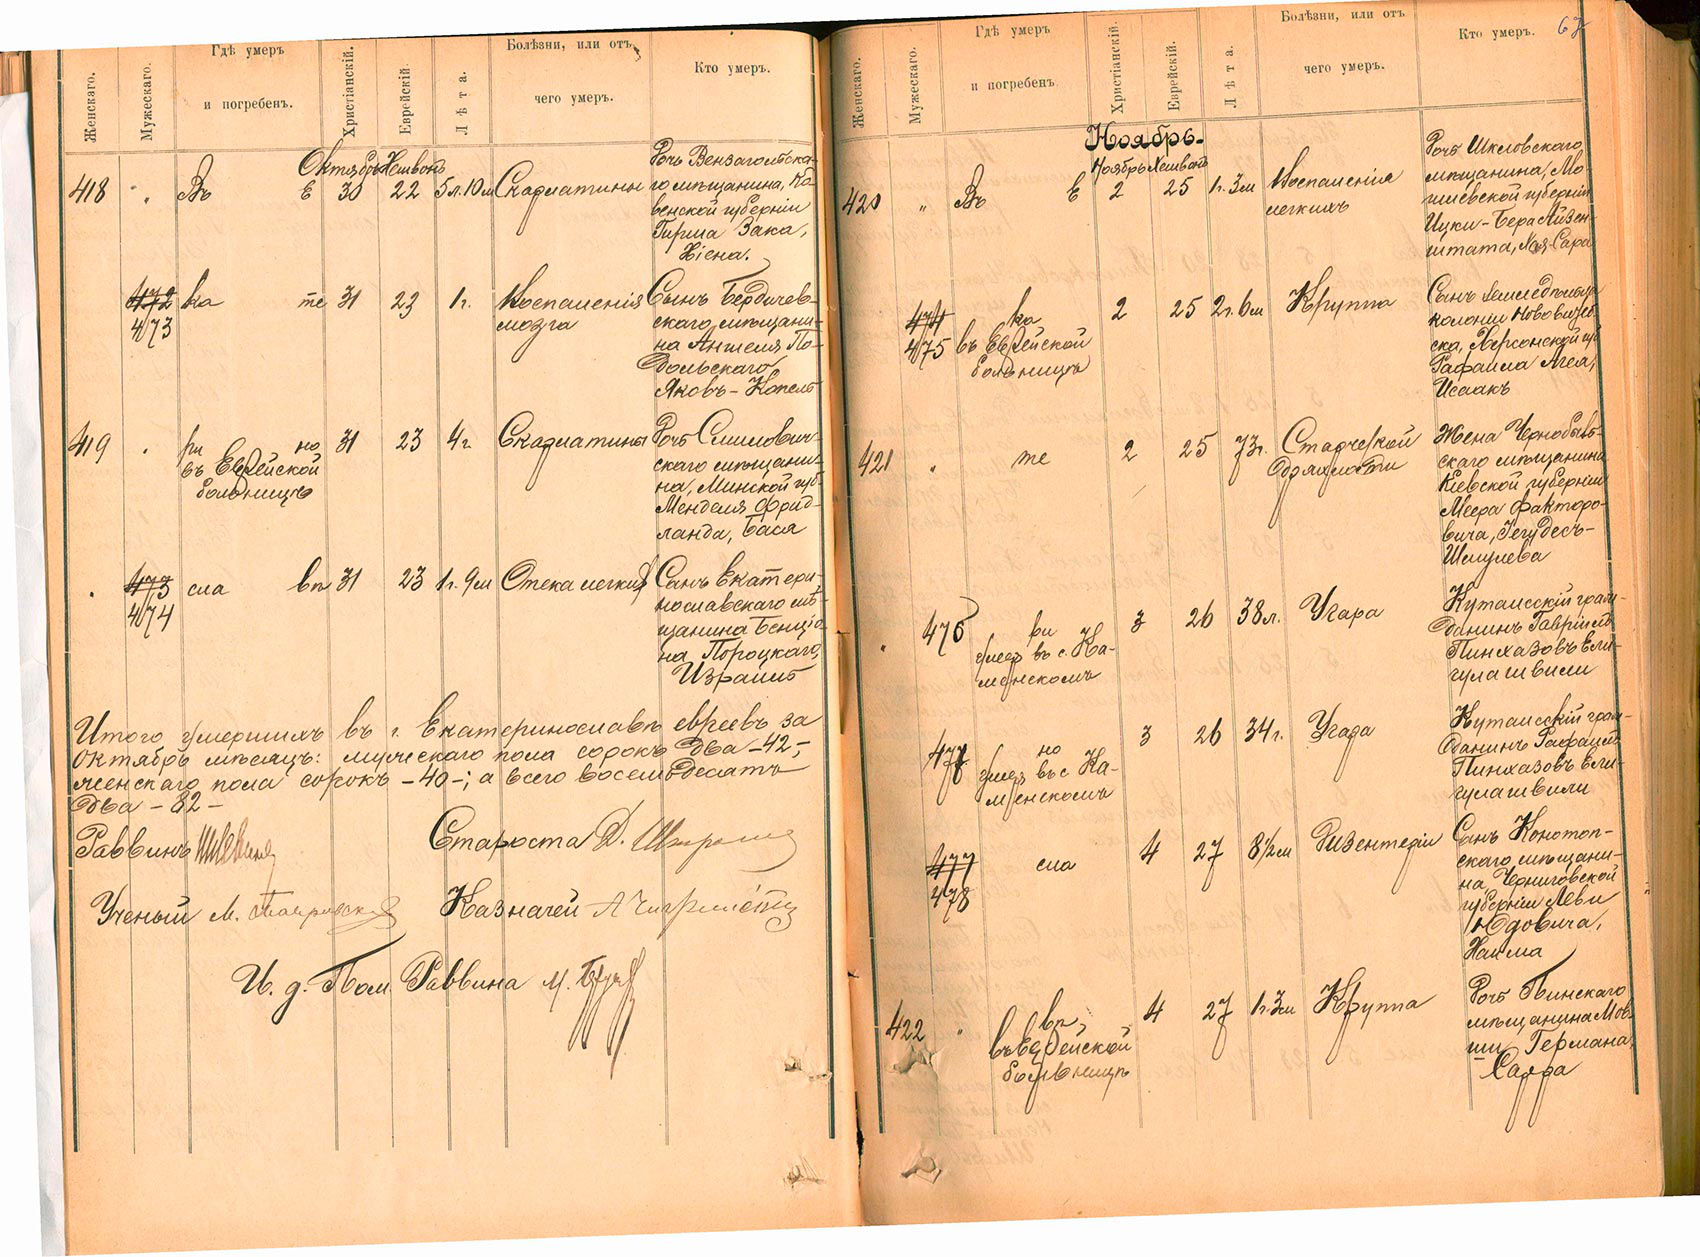 Женскаго.
Мужескаго.
Гдѣ умеръ
и погребенъ.
Христіанскій.
Еврейскій.
Лѣта.
Болѣзни, или отъ
чего умеръ.
Кто умеръ.
Октябрь Хешвонъ
418 " Въ Е 30 22 5 л. 10 м Скарлатины
Дочь Вензагольска-
го мѣщанина, Ко-
венской губерніи
Гирша Зака,
Хіена.
472
473 ка те 31 23 1 г. Воспаленія
мозга
Сынъ Бердичев-
скаго мѣщани-
на Аншеля По-
дольскаго
Яковъ-Копель
419 " ри но 31 23 4 г. Скарлатины
въ Еврейской
больницѣ
Дочь Смилович-
скаго мѣщани-
на, Минской губ.
Менделя Фрид-
ланда, Бася
" 473
474 сла вѣ 31 23 1 г. 9 м Отека легкихъ
Сынъ Екатери-
нославскаго мѣ-
щанина Бенціо-
на Пороцкаго,
Израиль
Итого умершихъ въ г. Екатеринославѣ евреевъ за
Октябрь мѣсяцъ: мужескаго пола сорокъ два -42-;
женскаго пола сорокъ -40-; а всего восемьдесятъ
два -82-
Раввинъ
Староста Д.
Ученый М.
Казначей
И. д. Пом. Раввина М.
67
Женскаго.
Мужескаго.
Гдѣ умеръ
и погребенъ
Христіанскій.
Еврейскій.
Лѣта.
Болѣзни, или отъ
чего умеръ.
Кто умеръ.
Ноябрь.
Ноябрь Хешвонъ
420 " Въ Е 2 25 1 г. 3 м Воспаленія
легкихъ
Дочь Шкловскаго
мѣщанина, Мо-
гилевской губерніи
Ицки-Бера Айзен-
штата, Хая-Сара
474
475 ка 2 25 2 г. 6 м Круппа
въ Еврейской
больницѣ
Сынъ
колоніи Нововитеб-
ска, Херсонской губ
Рафаила Агея,
Исаакъ
421 " те 2 25 73 г. Старческой
дряхлости
Жена Чернобыль-
скаго мѣщанина
Кіевской губерніи
Меера Факторо-
вича, Іегудесъ-
Шмулева
" 476 ри 3 26 38 л. Угара
умеръ въ с. Ка-
менскомъ
Кутаисскій граж-
данинъ Гавріилъ
Пинхазовъ Ели-
гулашвили
477 но 3 26 34 г. Угара
умеръ въ с. Ка-
менскомъ
Кутаисскій граж-
данинъ Рафаилъ
Пинхазовъ Ели-
гулашвили
477
478 сла 4 27 8½ м Дизентеріи
Сынъ Конотоп-
скаго мѣщани-
на, Черниговской
губерніи Леви
Юдовича,
Наима
422 " вѣ, 4 27 1 г. 3 м Круппа
въ Еврейской
больницѣ
Дочь Пинскаго
мѣщанина Мов-
ши Германа,
Сарра